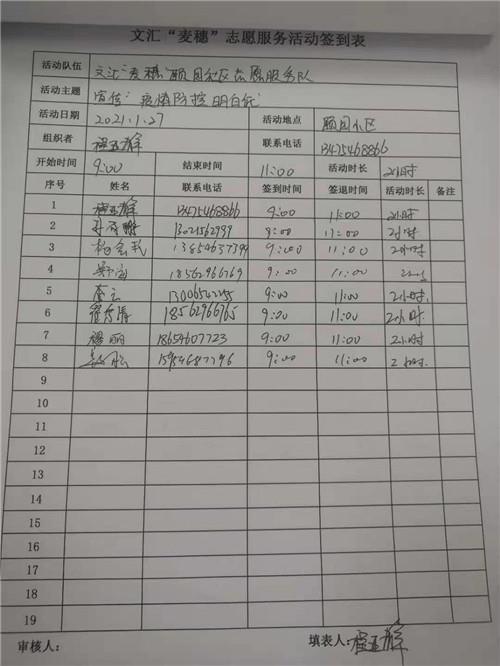 文汇“麦穗”志愿服务活动签到表
活动队伍 文汇“麦穗”颐园社区志愿服务队
活动主题 宣传“疫情防控明白纸”
活动日期 2021.1.27 活动地点 颐园小区
组织者 联系电话 13475468866
开始时间 9:00 结束时间 11:00 活动时长 2小时
序号 姓名 联系电话 签到时间 签退时间 活动时长 备注
1 13475468866 9:00 11:00 2小时
2 13021562939 9:00 11:00 2小时
3 9:00 11:00 2小时
4 18562966769 9:00 11:00 2小时
5 9:00 11:00 2小时
6 18562966765 9:00 11:00 2小时
7 18654607723 9:00 11:00 2小时
8 9:00 11:00 2小时
9
10
11
12
13
14
15
16
17
18
19
审核人： 填表人：